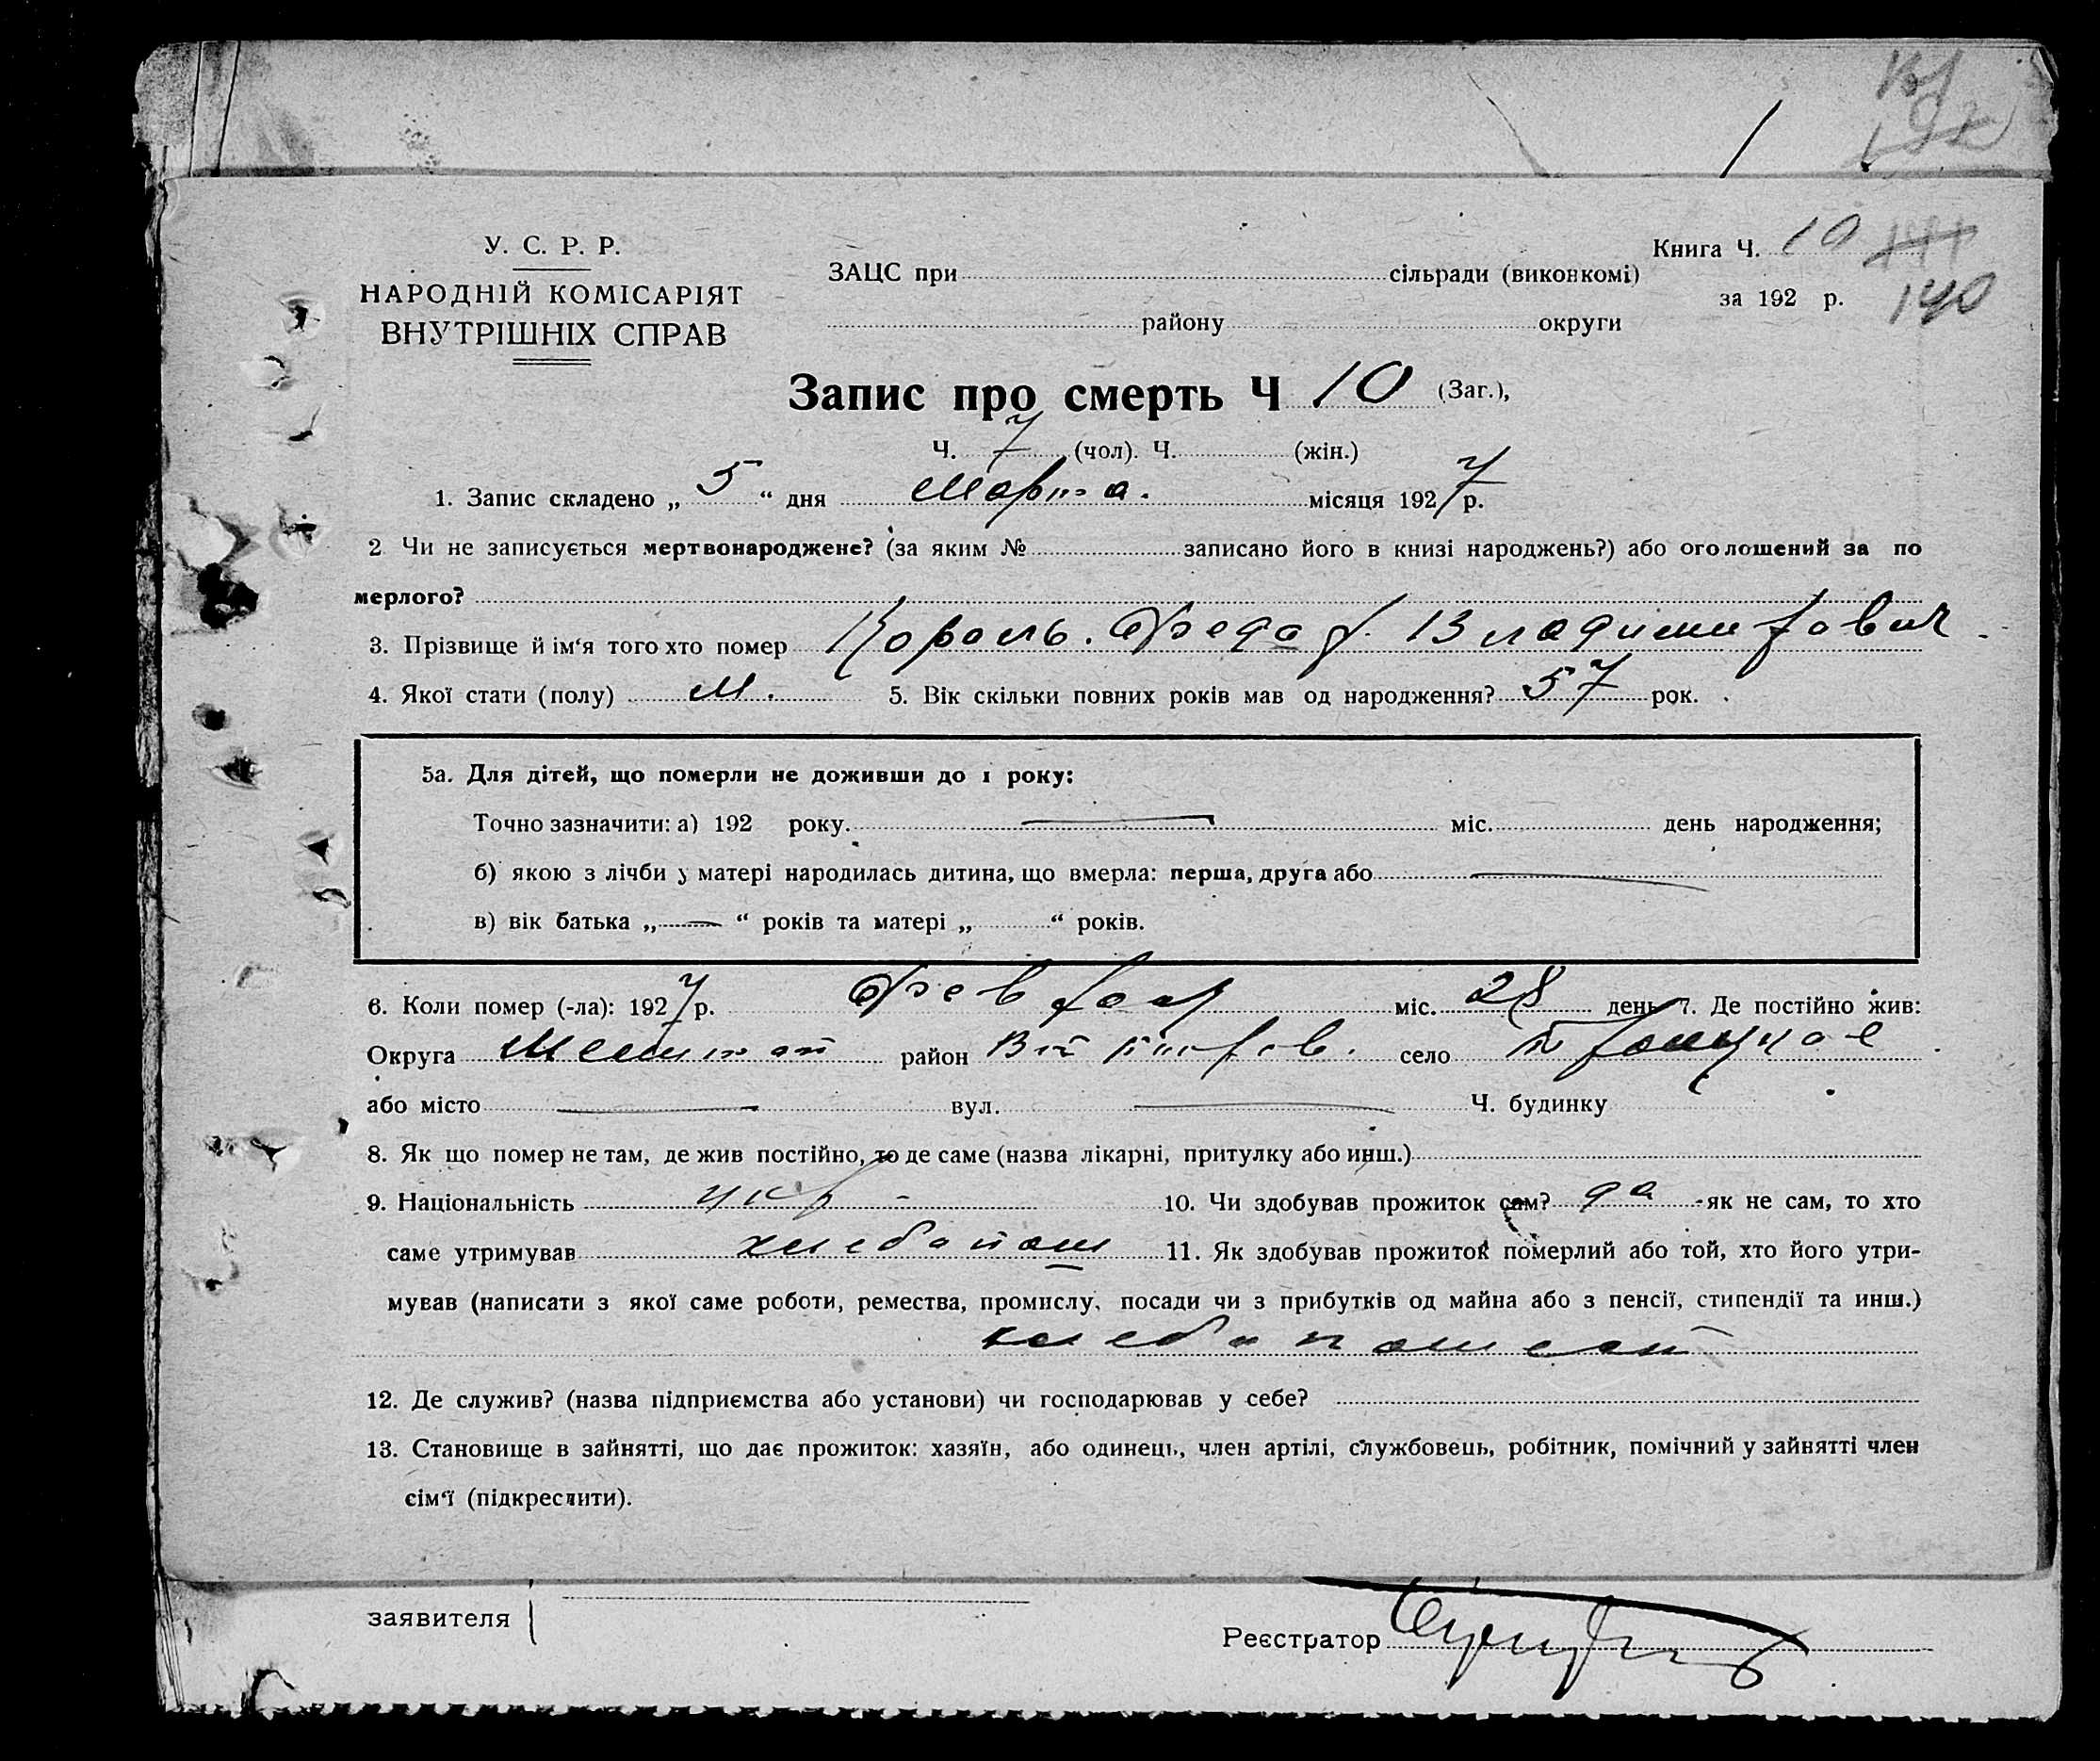 У. С. Р. Р.
НАРОДНІЙ КОМІСАРІЯТ
ВНУТРІШНІХ СПРАВ
ЗАЦС при сільради (виконкомі)
району округи
Книга Ч. 10
за 192 р. 140
Запис про смерть Ч 10 (Заг.),
Ч. 7 (чол). Ч. (жін.)
1. Запис складено „ 5 “ дня Марта. місяця 1927 р.
2 Чи не записується мертвонароджене? (за яким № записано його в книзі народжень?) або оголошений за по
мерлого?
3. Прізвище й ім‘я того хто помер Король. Федор Владимирович
4. Якої стати (полу) М. 5. Вік скільки повних років мав од народження? 57 рок.
5а. Для дітей, що померли не доживши до 1 року:
Точно зазначити: а) 192 року. міс. день народження;
б) якою з лічби у матері народилась дитина, що вмерла: перша, друга або
в) вік батька „ — “ років та матері „ “ років.
6. Коли помер (-ла): 1927 р. Февраля міс. 28 день 7. Де постійно жив:
Округа район село
або місто — вул. — Ч. будинку
8. Як що помер не там, де жив постійно, то де саме (назва лікарні, притулку або инш.)
9. Національність укр 10. Чи здобував прожиток сам? да як не сам, то хто
саме утримував хлебопаш 11. Як здобував прожиток померлий або той, хто його утри-
мував (написати з якої саме роботи, ремества, промислу, посади чи з прибутків од майна або з пенсії, стипендії та инш.)
12. Де служив? (назва підприємства або установи) чи господарював у себе?
13. Становище в зайнятті, що дає прожиток: хазяїн, або одинець, член артілі, службовець, робітник, помічний у зайнятті член
сім‘ї (підкреслити).
заявителя
Реєстратор